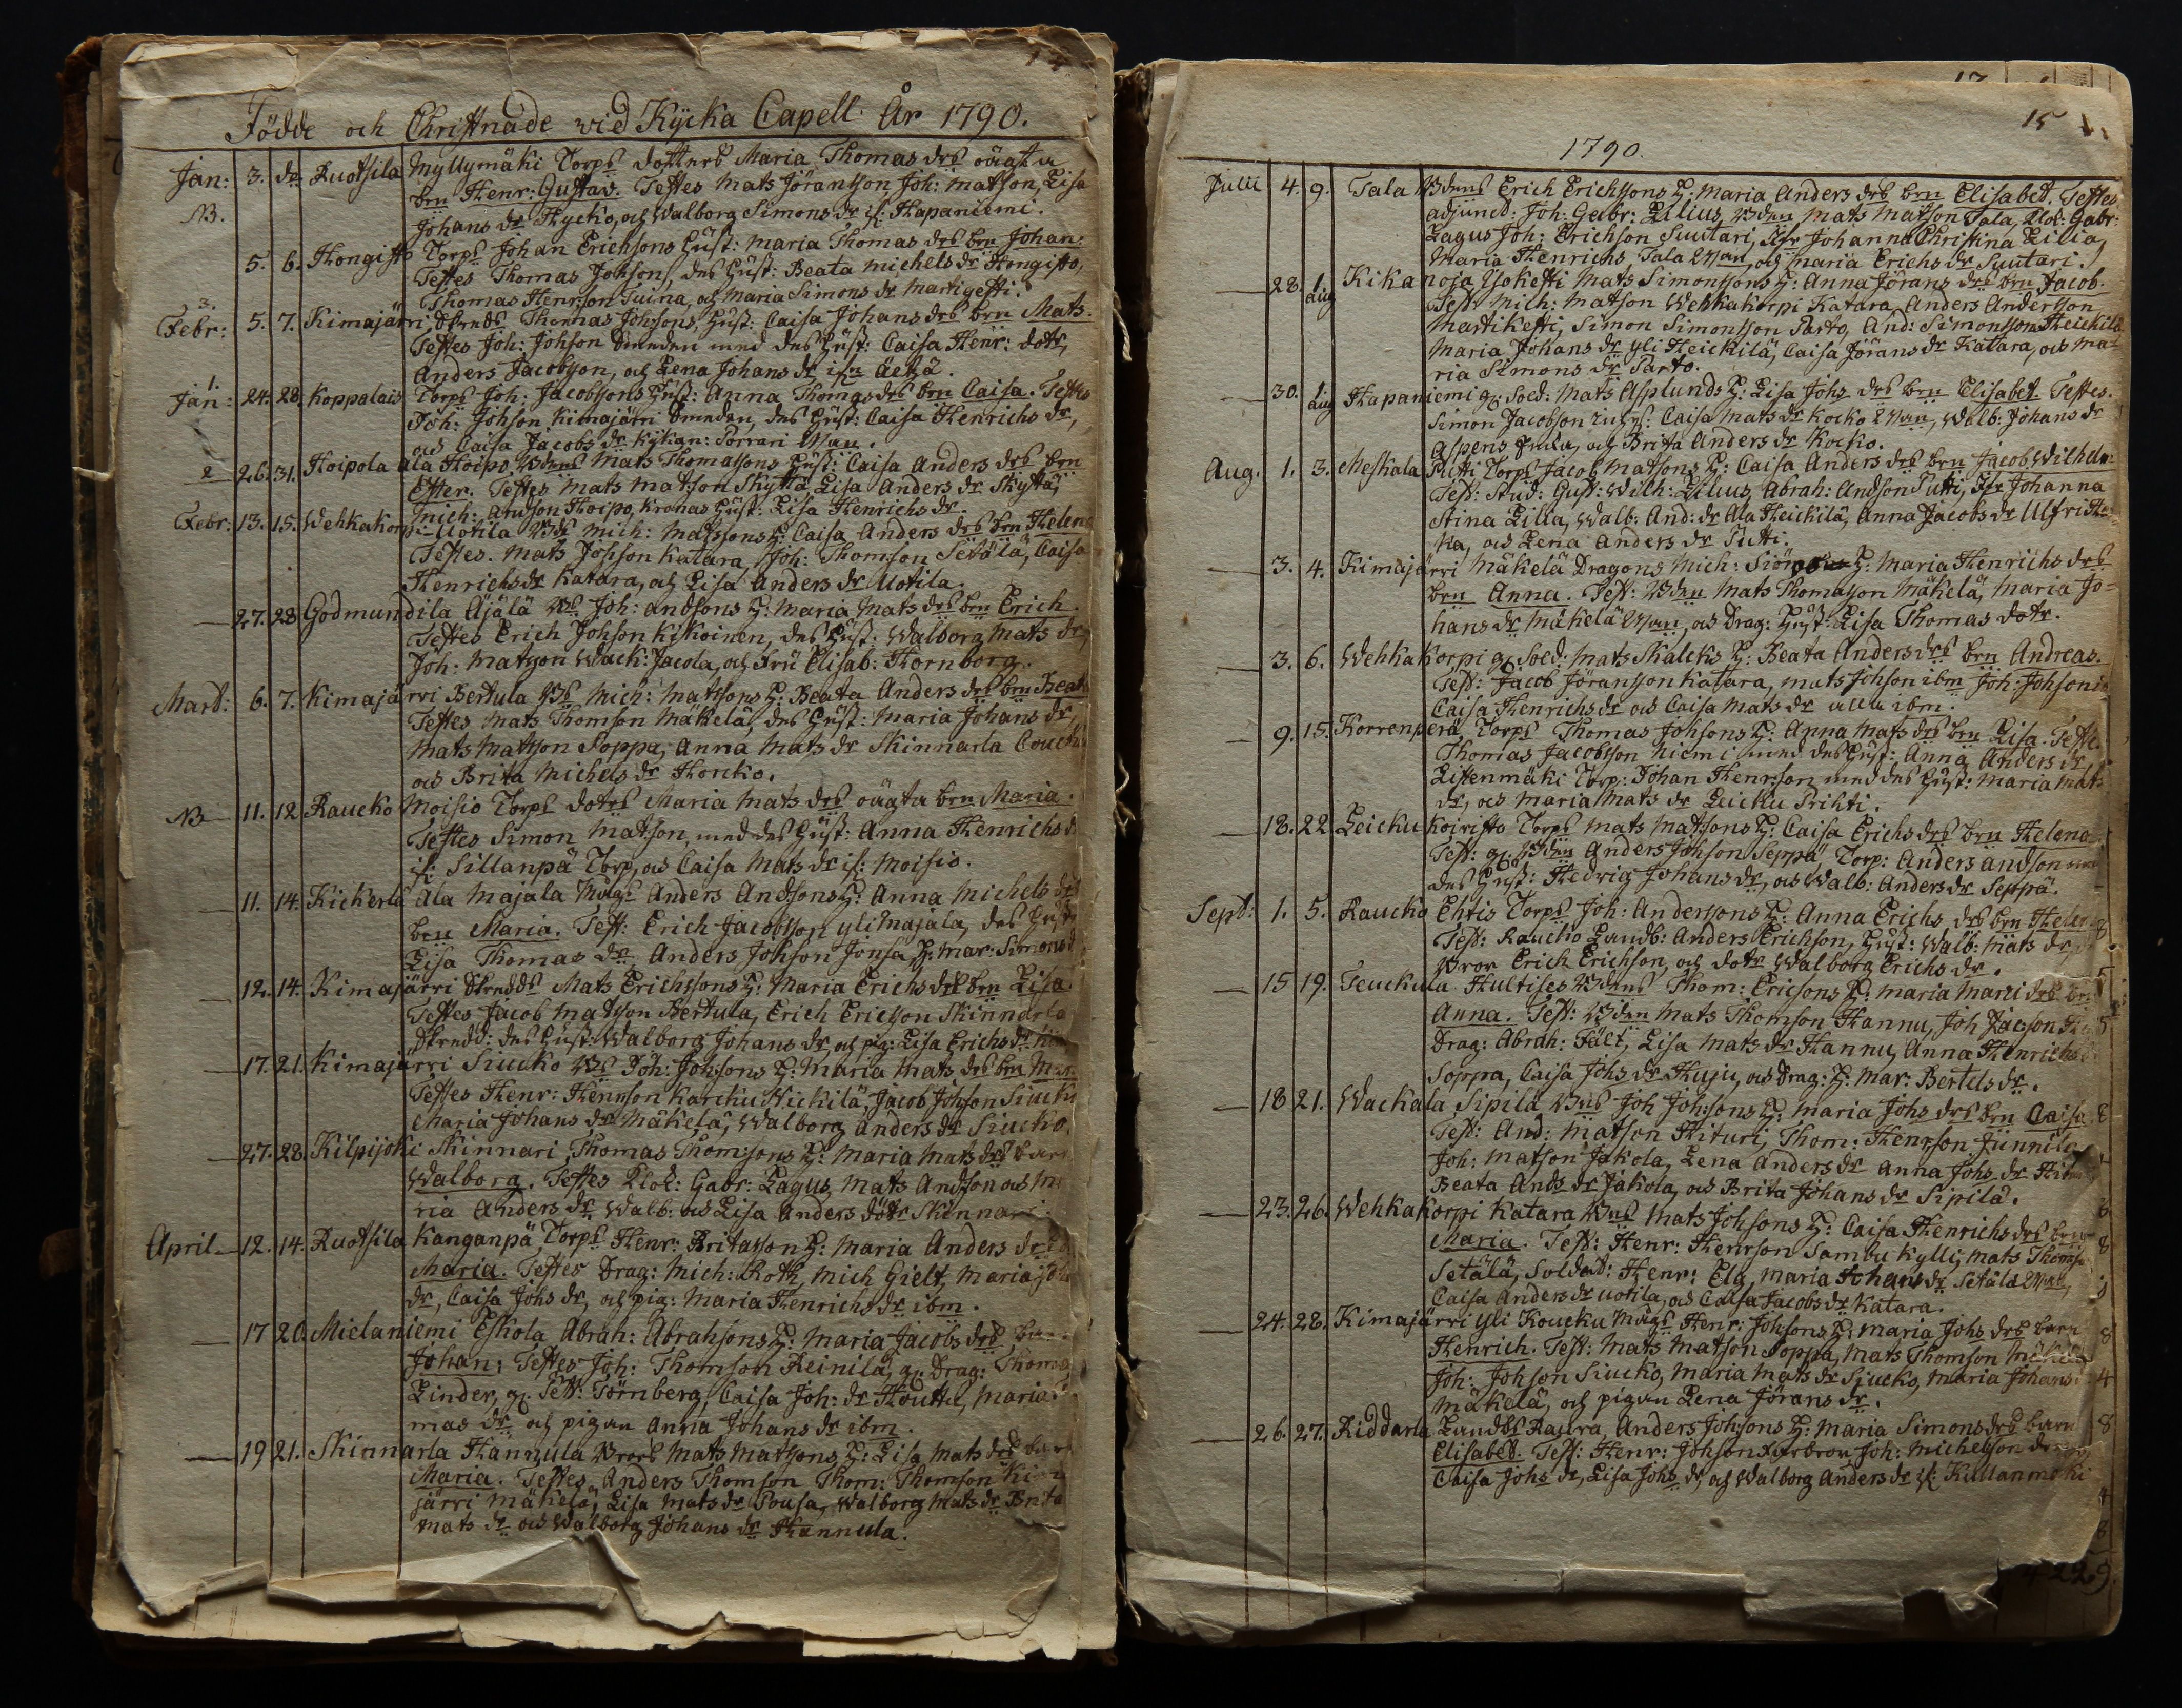 14
Födde och Christnade vid Kycka Capell År 1790.
Jan: 3. do Ruotsila Myllymäki Torps dotters Maria Thomas drs oägta
NB. brn Henr: Gustav. Testes Mats Jöransson, Joh: Matson, Lisa
Johans dr Kycko, och Walborg Simons dr if: Hapaniemi.
5. 6. Hongisto Torps Johan Erichsons Hust: Maria Thomas drs brn Johan:
Testes Thomas Johson, des Hust: Beata Michels dr Hongisto,
Thomas Henrson Tuina, och Maria Simons dr Martigesti.
3.
Febr: 5. 7. Kimajärri, Skredds Thomas Johsons, Hust: Caisa Johans drs brn Mats.
Testes Joh: Johson Smeden med des Hust: Caisa Henr: dotr,
Anders Jacobson, och Lena Johans dr
1.
Jan: 24. 28. Koppalais Torps Joh: Jacobsons Hust: Anna Thomas drs brn Caisa. Testes
Joh: Johson Kimajärri Smeden, des Hust: Caisa Henrichs dr,
och Caisa Jacobs dr Kykän: Porrari
2 26. 31. Hoipola ala Hoipo Mats Thomassons Hust: Caisa Anders drs brn
Ester. Testes Mats Matson Skyttä Lisa Anders dr Skyttä,
Mich: Andson Hoipo, Kronas Hust: Lisa Henrichs dr.
Febr: 13. 15. Wehkakorpi Uotila Mich: Matssons H: Caisa Anders drs brn Helena
Testes. Mats Johson Katara, Joh: Thomson Setälä, Caisa
Henrichs dr Katara, och Lisa Anders dr Uotila.
— 27. 28 Godmundila Äjälä Joh: Andsons H: Maria Mats drs brn Erich.
Testes Erich Johson Kikoinen, des Hust: Walborg Mats dr,
Joh: Matson Wack: Jacola, och Fru Elisab: Hornborg.
Mart: 6. 7. Kimajärri Bertula Mich: Matssons H: Beata Anders drs brn Beata
Testes Mats Thomson Mäkelä, des Hust: Maria Johans dr,
Mats Matson Soppa, Anna Mats dr Skinnarla
och Brita Michels dr Horcko.
NB — 11. 12 Raucko Moisio Torps dotrs Maria Mats drs oägta brn Maria.
Testes Simon Matson, med des Hust: Anna Henrichs
if: Sillanpä Torp, och Caisa Mats dr if: Moisio.
— 11. 14. Kickerla Ala Majala Anders Andsons H: Anna Michels drs
brn Maria. Test: Erich Jacobsson yli Majala, des Hust
Lisa Thomas dr, Anders Johson Jonsa, H: Mar: Simons
— 12. 14. Kimajärri Skredds Mats Erichssons H: Maria Erichs drs brn Lisa.
Testes Jacob Matson Bertula, Erich Ericsson Skinnarla
Skredd: des Hust: Walborg Johans dr, och pig: Lisa Erichs dr
— 17. 21. Kimajärri Siucko Joh: Johsons H: Maria Mats drs brn
Testes Henr: Henrson Karchu Wickilä, Jacob Johson Siucko
Maria Johans dr Mäkelä, Walborg Anders dr Siucko.
— 27. 28. Kilpijoki Skinnari, Thomas Thomsons H: Maria Mats drs barn
Walborg. Testes Gabr: Lagus, Mats Andson och Ma
ria Anders dr Walb: och Lisa Anders dotr Skinnari.
April — 12. 14. Ruotsila Kanganpä Torps Henr: Britasson H: Maria Anders drs
Maria. Testes Drag: Mich: Roth, Mich Gielt, Maria
dr, Caisa Johs dr, och pig: Maria Henrichs dr ibm.
— 17 20. Mielaniemi Eskola Abrah: Abrahsons H: Maria Jacobs drs barn
Johan; Testes Joh: Thomson Heinilä, gl. Drag: Thomas
Linder, gl. Törnberg, Caisa Joh: dr Houtta, Maria
mas dr och pigan Anna Johans dr ibm.
— 19 21. Skinnarla Hannula Mats Matsons H: Lisa Mats drs barn
Maria. Testes Anders Thomson Thom: Thomson Kima
järri Mäkelä, Lisa Mats dr Pousa, Walborg Mats dr Brita
Mats dr och Walborg Johans dr Hannula.
15
1790.
Julii 4. 9. Tala Erich Erichsons H: Maria Anders drs brn Elisabet. Testes
adjunct: Joh: Gabr: Lilius, Mats Matson Tala, Gabr:
Lagus Joh: Erichson Suutari, Johanna Christina Lilia,
Maria Henrichs Tala och Maria Erichs dr Suutari.
— 28. 1. aug Kikanoja Yokesti Mats Simonssons H: Anna Jörans drs brn Jacob.
Test: Mich: Matson Wehkakorpi Katara, Anders Andersson
Martikesti, Simon Simonsson Sarto, And: Simonsson Heickilä
Maria Johans dr yli Heickilä, Caisa Jörans dr Katara, och Ma-
ria Simons dr Sarto.
— 30. 1 aug Hapaniemi gl: Sold: Mats Asplunds H: Lisa Johs drs brn Elisabet. Testes.
Simon Jacobson Caisa Mats dr Kocko Walb: Johans dr
Aspens och Brita Anders dr Kocko.
Aug. 1. 3. Meskala Putti Torps Jacob Matsons H: Caisa Anders drs brn Jacob Wilhelm:
Test: Stud: Gust: Wilh: Lilius, Abrah: Andson Putti, Johanna
Stina Lilia, Walb: And: dr Ala Heickilä, Anna Jacobs dr
ka, och Lena Anders dr Putti.
— 3. 4. Kimajärri Mäkelä Dragons Mich: H: Maria Henrichs drs
brn Anna. Test: Mats Thomasson Mäkelä, Maria Jo=
hans dr Mäkelä och Drag: Hust: Lisa Thomas dotr.
— 3. 6. Wehkakorpi gl. Sold: Mats Skalcks H: Beata Anders drs brn Andreas.
Test: Jacob Jöransson Katara, Mats Johson ibm Joh: Johson
Caisa Henrichs dr och Caisa Mats dr alla ibm.
— 9. 15. Korrenperä, Torps Thomas Johsons H: Anna Mats drs brn Lisa. Teste.
Thomas Jacobsson Niemi med des Hust: Anna Anders dr
Listenmäki Torp: Johan Henrson med des Hust: Maria Mats
dr, och Maria Mats dr Leicku Prihti.
— 18. 22 Leicku Koiristo Torps Mats Matsons H: Caisa Erichs drs brn Helena
Test: gl. Anders Johson Seppä Torp: Anders Andson
des Hust: Hedvig Johans dr, och Walb: Anders dr Seppä.
Sept: 1. 5. Raucko Ehtis Torps Joh: Anderssons H: Anna Erichs drs brn Helen
Test: Raucko Landb: Anders Erichson, Hust: Walb: Mats dr,
Bror Erich Erichson, och dotr Walborg Erichs dr.
— 15 19. Teuckula Hultises Thom: Ericsons H: Maria drs brn
Anna. Test: Mats Thomson Hannu, Joh
Drag: Abrah: Fält, Lisa Mats dr Hannu, Anna Henrichs
Soppa, Caisa Johs dr Huju, och Drag: H: Mar: Bertels dr.
— 18 21. Wackala Sipilä Joh Johsons H: Maria Johs drs brn Caisa
Test: And: Matson Hituri, Thom: Henrson Junnila
Joh: Matson Jakola, Lena Anders dr Anna Johs dr
Beata Ands dr Jakola, och Brita Johans dr Sipilä.
— 23. 26. Wehkakorpi Katara Mats Johsons H: Caisa Henrichs drs brn
Maria. Test: Henr: Henrson Sambu Kylli, Mats Thoms
Setälä, Soldat: Henr: Elg, Maria Johans dr Setälä
Caisa Anders dr Uotila, och Caisa Jacobs dr Katara.
— 24. 28. Kimajärri yli Koucku Henr: Johsons H: Maria Johs drs barn
Henrich. Test: Mats Matson Soppa, Mats Thomson Mäkelä
Joh: Johson Siucko, Maria Mats dr Siucko, Maria Johans
Mäkelä, och pigan Lena Jörans dr.
— 26. 27. Riddarla Landbs Anders Johsons H: Maria Simons drs barn
Elisabet. Test: Henr: Johson Joh: Michelson
Caisa Johs dr, Lisa Johs dr, och Walborg Anders dr if: Kullanmäki